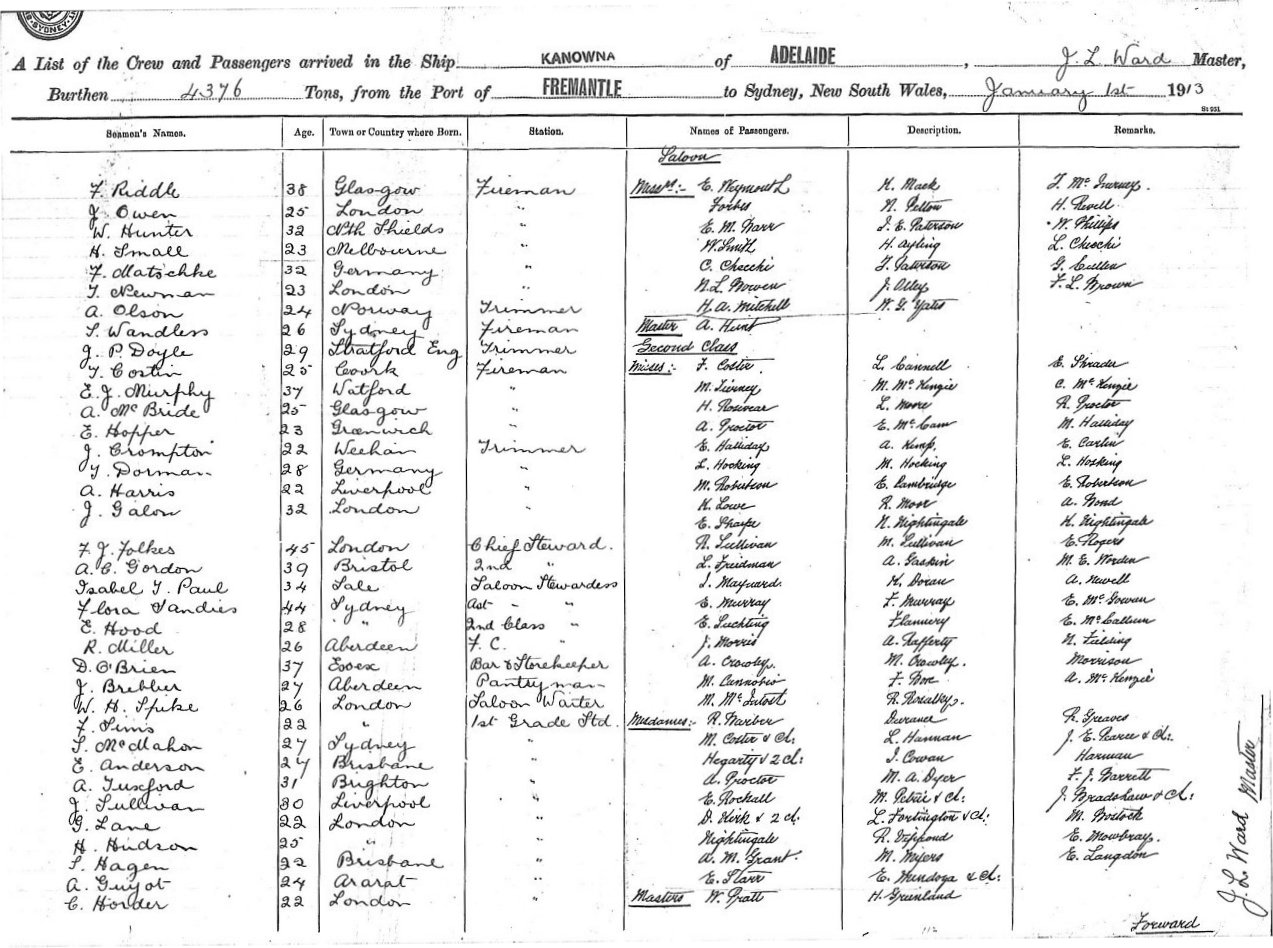 SYDNEY
A List of the Crew and Passengers arrived in the Ship KANOWNA of ADELAIDE, J. L. Ward Master,
Burthen 4376 Tons, from the Port of FREMANTLE to Sydney, New South Wales, January 1st 1913
St 951
Seamen's Names. Age. Town or Country where Born. Station. Names of Passengers. Description. Remarks.
Saloon
F. Riddle 38 Glasgow Fireman Messrs:- E. Weymouth K. Mack J. McInerney.
J. Owen 25 London " Forbes N. Pelton H. Revell
W. Hunter 32 Nth Shields " E. M. Barr J. E. Paterson W. Phillips
H. Small 23 Melbourne " W. Smith H. Ayling L. Checchi
F. Matschke 32 Germany " C. Checchi J. Paterson G. Cullen
T. Newman 23 London " N. L. Bowen J. Olley F. L. Brown
A. Olson 24 Norway Trimmer H. A. Mitchell W. G. Yates
S. Wandless 26 Sydney Fireman Master A. Hunt
J. P. Doyle 29 Stratford Eng Trimmer Second Class
T. Costin 25 Coork Fireman Misses:- F. Coster. L. Cannell E. Shrader
E. J. Murphy 37 Watford " M. Tierney M. McKenzie C. McKenzie
A. McBride 25 Glasgow " H. Rosevear L. Moore R. Proctor
E. Hopper 23 Greenwich " A. Proctor E. McCam M. Halliday
J. Crompton 22 Weehan Trimmer E. Halliday A. Kemp. E. Carlin
T. Dorman 28 Germany " L. Hocking M. Hocking L. Hosking
A. Harris 22 Liverpool " M. Robertson E. Cambridge E. Robertson
J. Galon 32 London " K. Lowe R. Moor A. Bond
E. Sharpe N. Nightingale H. Nightingale
F. J. Folkes 45 London Chief Steward. R. Sullivan M. Sullivan E. Rogers
A. C. Gordon 39 Bristol 2nd " L. Freidman A. Gaskin M. E. Worden
Isabel T. Paul 34 Sale Saloon Stewardess J. Maynard K. Doran A. Newell
Flora Sandies 44 Sydney Ast " " E. Murray F. Murray E. McGowan
E. Hood 28 " 2nd Class " E. Luchting Flannery E. McCallum
R. Miller 26 Aberdeen F. C. " J. Morris A. Rafferty N. Fielding
D. O'Brien 37 Essex Bar & Storekeeper A. Crowley. M. Crowley. Morrison
J. Brebber 27 Aberdeen Pantryman M. Cannobio F. Box A. McKenzie
W. H. Spike 26 London Saloon Waiter M. McIntosh R. Rosalky.
F. Sims 22 " 1st Grade Std. Mesdames:- R. Barber Durance R. Greaves
S. McMahon 27 Sydney " M. Coster & Ch: L. Hannan J. E. Pearce & Ch:
E. Anderson 27 Brisbane " Hegarty & 2 Ch: J. Cowan Harman
A. Tuxford 31 Brighton " A. Proctor M. A. Dyer F. J. Barrett
J. Sullivan 30 Liverpool " E. Rockall M. Petrie & Ch: J. Bradshaw & Ch:
G. Lane 22 London " D. Kirk & 2 Ch: L. Fortington & Ch: M. Bostock
H. Hudson 25 " " Nightingale R. Vippond E. Mowbray.
S. Hagen 22 Brisbane " A. M. Grant. M. Myers E. Langdon
A. Guyot 24 Ararat " E. Starr E. Mendoga & Ch:
C. Horder 22 London " Masters W. Pratt H. Greenland
Forward
J. L. Ward Master